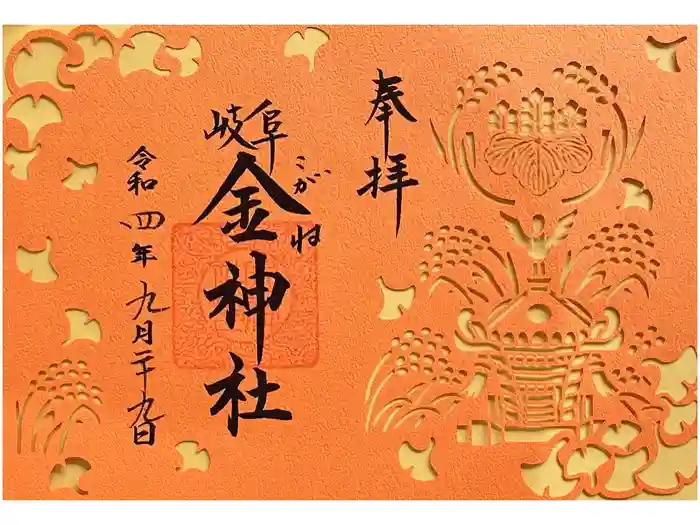 奉拝
岐阜
こがね
金神社
令和四年九月二十九日